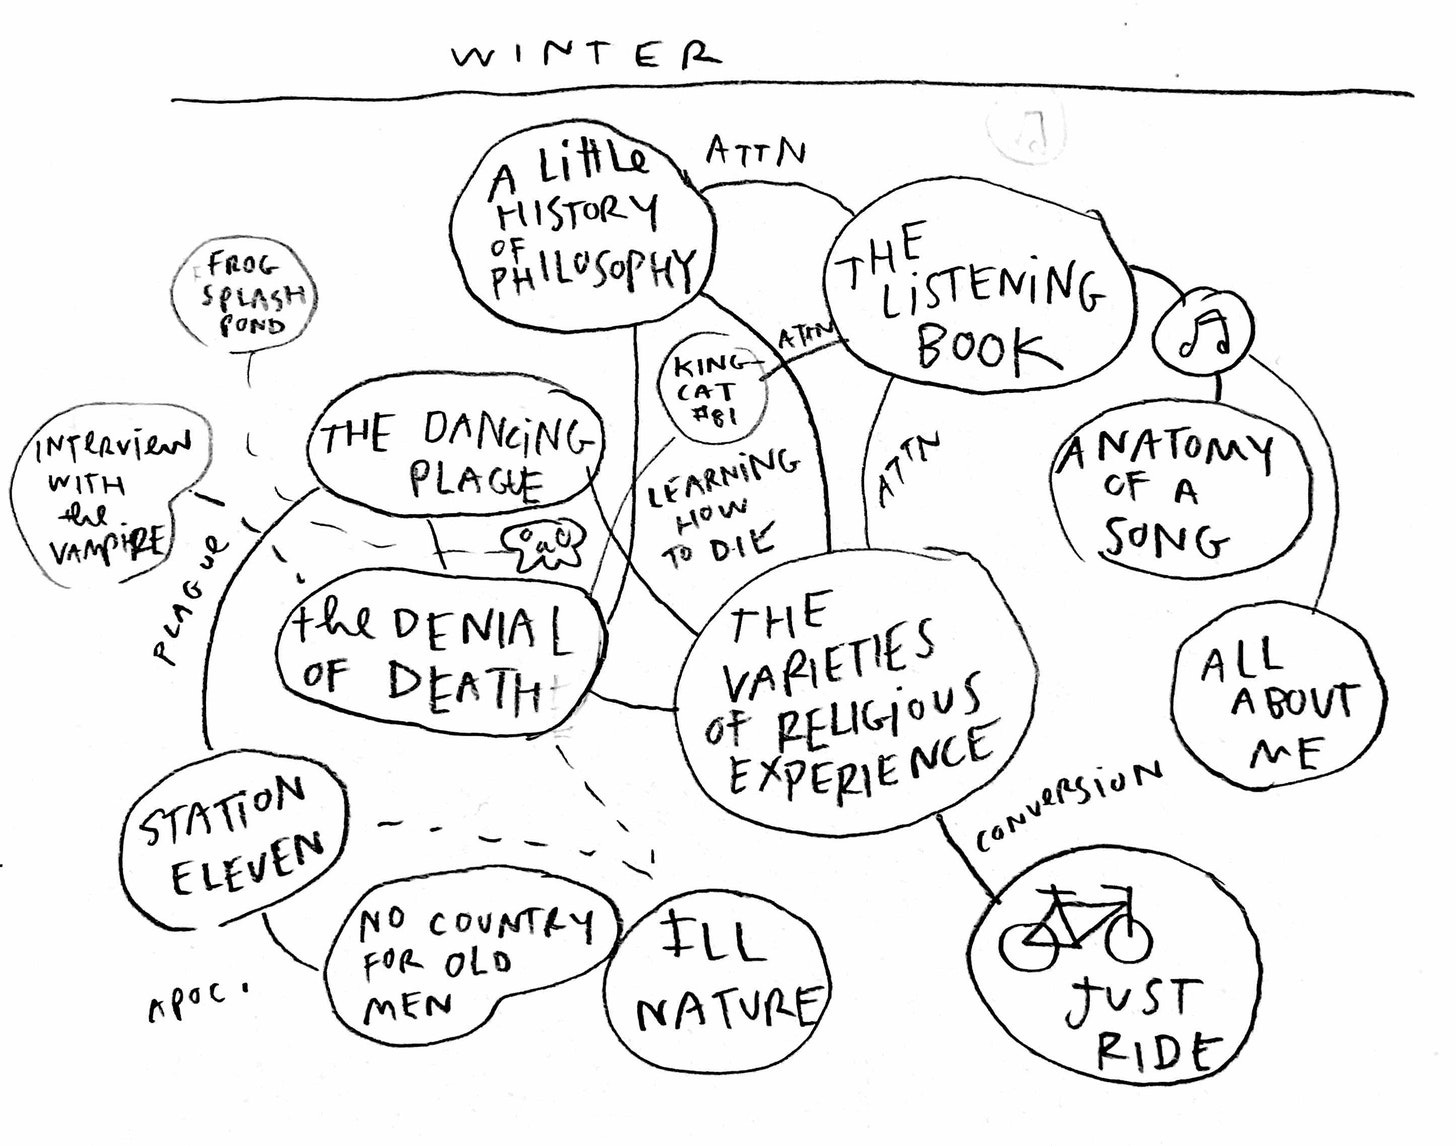 WINTER
A LittLe
HISTORY
OF
PHILOSOPHY
ATTN
THE
LiSTENiNG
BOOK
FROG
SPLASH
POND
KING-
CAT
#81
ATTN
THE DANCiNG
PLAGUE
INTERViEW
WITH
the
VAMPiRE
PLAGUe
LEARNiNG
HOW
TO DIE
ATTN
ANATOMY
OF A
SONG
the DENIAL
OF DEATH
THE
VARiETIES
OF RELIGiOUS
EXPERIENCE
ALL
ABOUT
ME
STATiON
ELEVEN
CONVeRSiON
NO COUNTRY
FOR OLD
MEN
APOC.
ILL
NATURE
JUST
RIDE